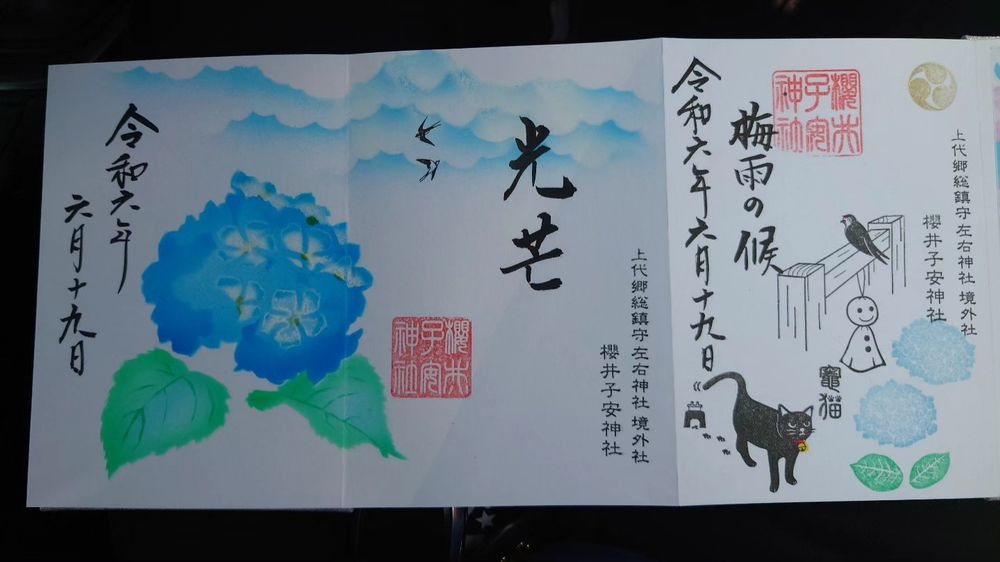 令和六年六月十九日
梅雨の候
櫻井
子安
神社
上代郷総鎮守左右神社 境外社
櫻井子安神社
竈猫
上代郷総鎮守左右神社 境外社
櫻井子安神社
光芒
櫻井
子安
神社
令和六年
六月十九日